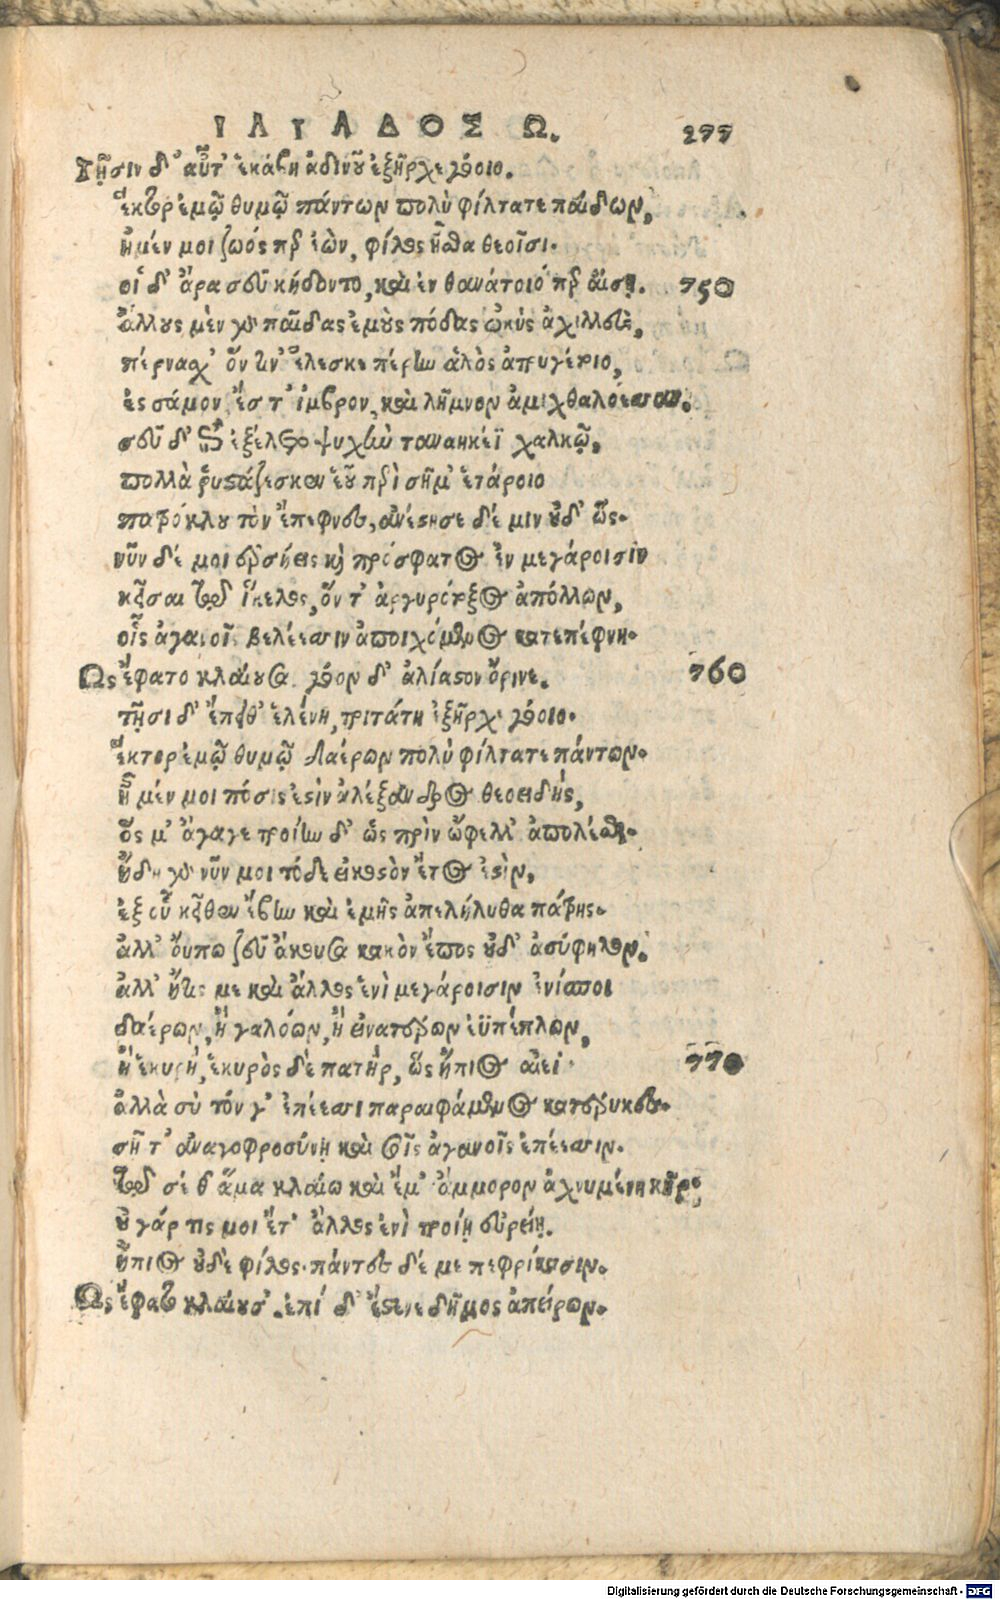 ΙΛΙΑΔΟΣ Ω. 277
Τῇσιν δ' αὖτ' ἑκάβη ἀδινοῦ ἐξῆρχε γόοιο.
ἕκτορ ἐμῷ θυμῷ πάντων πολὺ φίλτατε παίδων,
ἦ μέν μοι ζωός περ ἐὼν, φίλος ἦσθα θεοῖσι.
οἱ δ' ἄρα σεῦ κήδοντο, καὶ ἐν θανάτοιό περ αἴσῃ. 750
ἄλλους μὲν γὰρ παῖδας ἐμοὺς πόδας ὠκὺς ἀχιλλεὺς,
πέρνασχ' ὅν τιν' ἕλεσκε πέρην ἁλὸς ἀτρυγέτοιο,
ἐς σάμον, ἔς τ' ἴμβρον, καὶ λῆμνον ἀμιχθαλόεσσαν.
σεῦ δ' ἐπεὶ ἐξέλετο ψυχὴν ταναηκέϊ χαλκῷ,
πολλὰ ῥυστάζεσκεν ἑοῦ περὶ σῆμ' ἑτάροιο
πατρόκλου τὸν ἔπεφνες, ἀνέστησε δέ μιν οὐδ' ὥς.
νῦν δέ μοι ἑρσήεις καὶ πρόσφατος ἐν μεγάροισιν
κεῖσαι τῷ ἴκελος, ὅν τ' ἀργυρότοξος ἀπόλλων,
οἷς ἀγανοῖς βελέεσσιν ἀποιχόμενος κατεπέφνη.
Ὣς ἔφατο κλαίουσα γόον δ' ἀλίαστον ὄρινε. 760
τῇσι δ' ἔπειθ' ἑλένη, τριτάτη ἐξῆρχε γόοιο.
ἕκτορ ἐμῷ θυμῷ δαέρων πολὺ φίλτατε πάντων.
ἦ μέν μοι πόσις ἐστὶν ἀλέξανδρος θεοειδής,
ὅς μ' ἄγαγε τροίην δ' ὡς πρὶν ὤφελλ' ἀπολέσθαι.
ἤδη γὰρ νῦν μοι τόδε εἰκοστὸν ἔτος ἐστὶν,
ἐξ οὗ κεῖθεν ἔβην καὶ ἐμῆς ἀπελήλυθα πάτρης.
ἀλλ' οὔπω σεῦ ἄκουσα κακὸν ἔπος οὐδ' ἀσύφηλον.
ἀλλ' εἴτις με καὶ ἄλλος ἐνὶ μεγάροισιν ἐνίπτοι
δαέρων, ἢ γαλόων, ἢ εἰνατέρων ἐϋπέπλων,
ἢ ἑκυρή, ἑκυρὸς δὲ πατὴρ, ὣς ἤπιος αἰεί. 770
ἀλλὰ σὺ τόν γ' ἐπέεσσι παραιφάμενος κατέρυκες.
σῇ τ' ἀναγοφροσύνῃ καὶ σοῖς ἀγανοῖς ἐπέεσσιν.
τῷ σέ θ' ἅμα κλαίω καὶ ἔμ' ἄμμορον ἀχνυμένη κῆρ,
οὐ γάρ τις μοι ἔτ' ἄλλος ἐνὶ τροίῃ εὐρείῃ.
ἤπιος οὐδὲ φίλος. πάντες δέ με πεφρίκασιν.
Ὣς ἔφατο κλαίουσ'. ἐπί δ' ἔστενε δῆμος ἀπείρων.
Digitalisierung gefördert durch die Deutsche Forschungsgemeinschaft - DFG